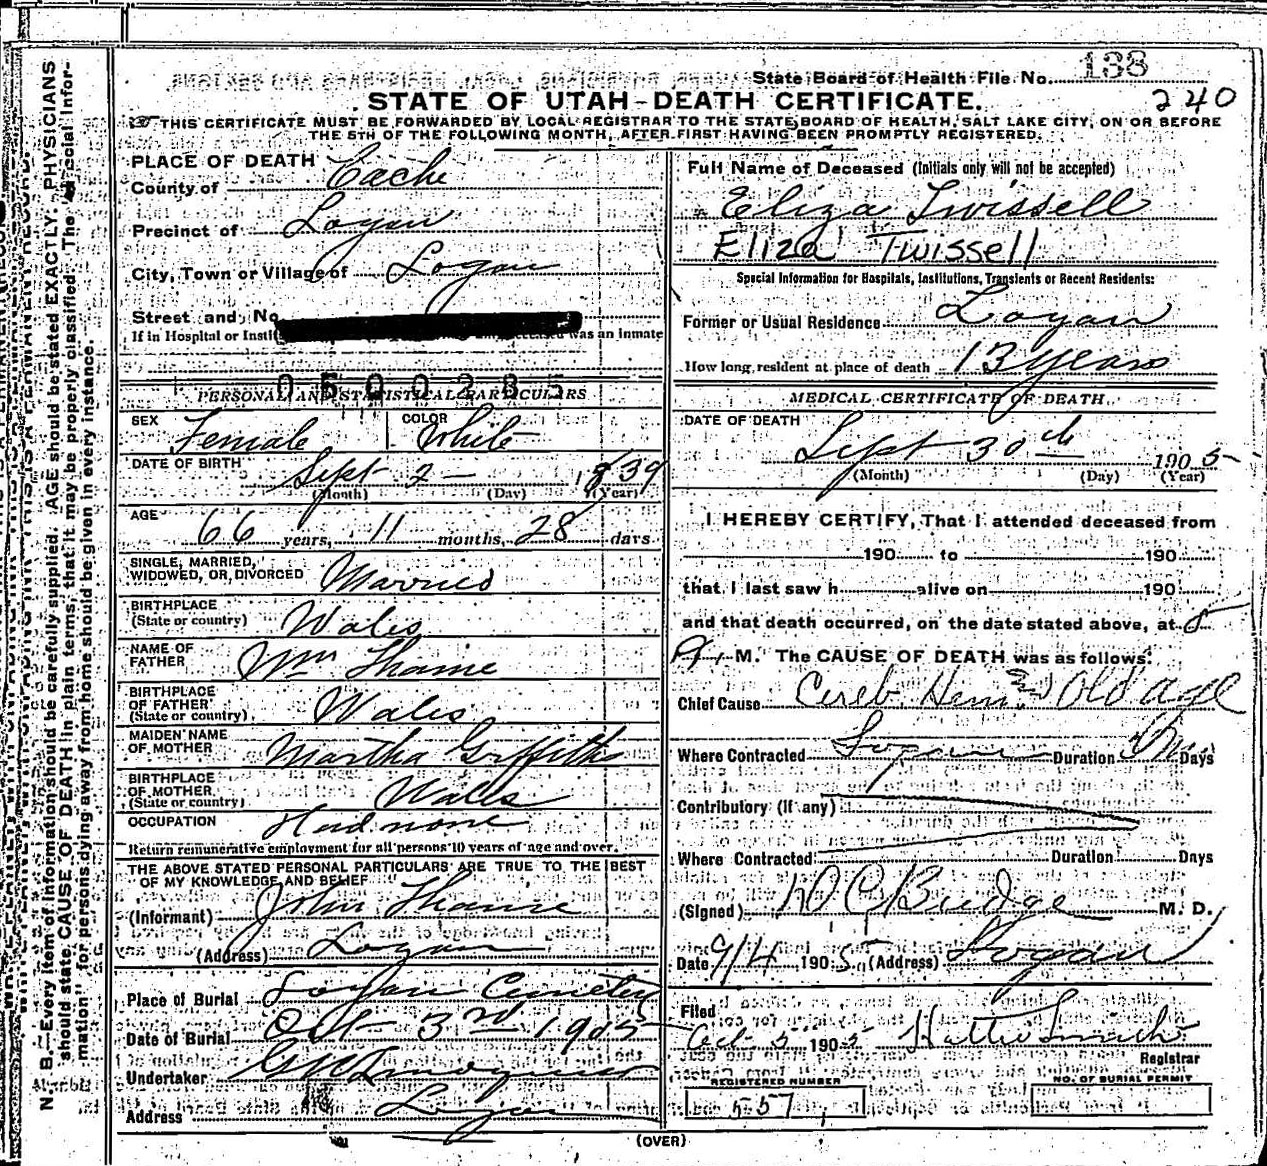 State Board of Health File No. 138
240
STATE OF UTAH—DEATH CERTIFICATE.
THIS CERTIFICATE MUST BE FORWARDED BY LOCAL REGISTRAR TO THE STATE BOARD OF HEALTH, SALT LAKE CITY, ON OR BEFORE
THE 5TH OF THE FOLLOWING MONTH, AFTER FIRST HAVING BEEN PROMPTLY REGISTERED.
N. B.—Every item of information should be carefully supplied. AGE should be stated EXACTLY. PHYSICIANS
should state CAUSE OF DEATH in plain terms, that it may be properly classified. The "Special Infor-
mation" for persons dying away from home should be given in every instance.
PLACE OF DEATH
County of Cache
Precinct of Logan
City, Town or Village of Logan
Street and No.
If in Hospital or was an inmate
0500285
PERSONAL AND STATISTICAL PARTICULARS
SEX Female COLOR White
DATE OF BIRTH Sept 2 — 1839
(Month) (Day) (Year)
AGE 66 years, 11 months, 28 days
SINGLE, MARRIED,
WIDOWED, OR DIVORCED Married
BIRTHPLACE
(State or country) Wales
NAME OF
FATHER Wm Thaine
BIRTHPLACE
OF FATHER
(State or country) Wales
MAIDEN NAME
OF MOTHER Martha Griffiths
BIRTHPLACE
OF MOTHER
(State or country) Wales
OCCUPATION Had none
Return remunerative employment for all persons 10 years of age and over.
THE ABOVE STATED PERSONAL PARTICULARS ARE TRUE TO THE BEST
OF MY KNOWLEDGE AND BELIEF
(Informant) John Thaine
(Address) Logan
Place of Burial Logan Cemetery
Date of Burial Oct 3rd 1905
Undertaker
Address Logan
Full Name of Deceased (Initials only will not be accepted)
Eliza Twissell
Eliza Twissell
Special Information for Hospitals, Institutions, Transients or Recent Residents:
Former or Usual Residence Logan
How long resident at place of death 13 years
MEDICAL CERTIFICATE OF DEATH
DATE OF DEATH
Sept 30th 1905
(Month) (Day) (Year)
I HEREBY CERTIFY, That I attended deceased from
190 to 190
that I last saw h alive on 190
and that death occurred, on the date stated above, at 5
A. M. The CAUSE OF DEATH was as follows:
Chief Cause Cereb. Hem. Old age
Where Contracted Logan Duration Days
Contributory (If any)
Where Contracted Duration Days
(Signed) D C Budge M. D.
Date 9/4 1905 (Address) Logan
Filed
Oct 5 1905 Registrar
REGISTERED NUMBER
557
NO. OF BURIAL PERMIT
(OVER)